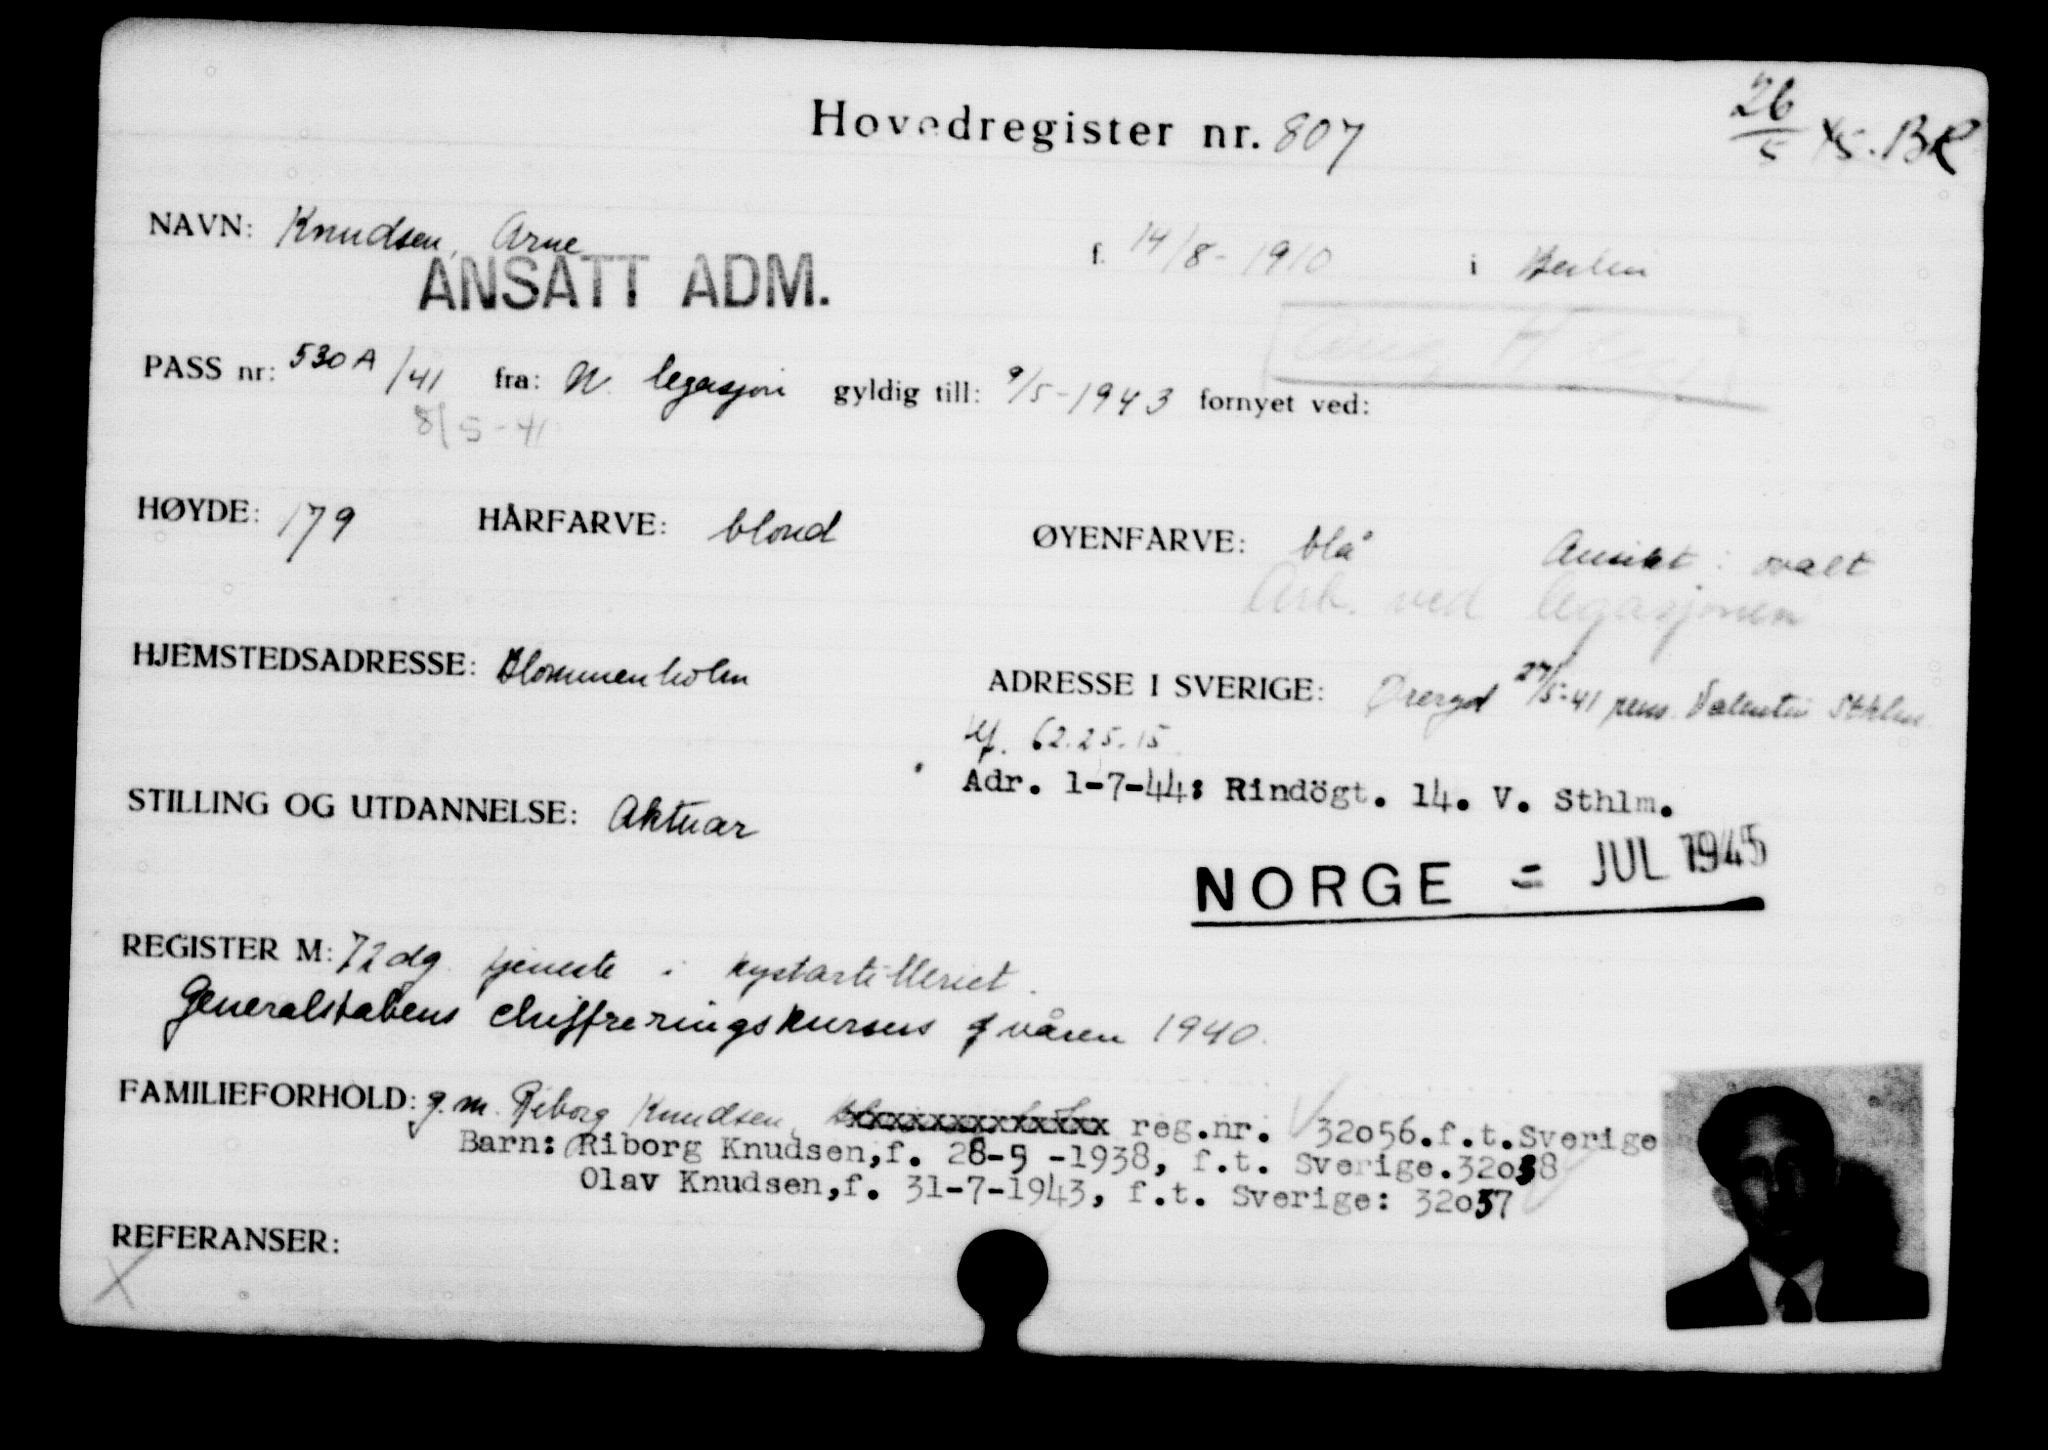 Hovedregister nr. 807
26/5 45. BR
NAVN: Knudsen, Arne f. 14/8-1910 i Berlin
ANSATT ADM.
PASS nr: 530A/41 fra: N. legasjon gyldig till: 9/5-1943 fornyet ved:
8/5-41
HØYDE: 179 HÅRFARVE: blond ØYENFARVE: blå Ansikt: ovalt
Ark. ved legasjonen
HJEMSTEDSADRESSE: Blommenholm ADRESSE I SVERIGE: 27/5-41 pens. Valentin Sthlm
tlf. 62.25.15
Adr. 1-7-44: Rindögt. 14. V. Sthlm.
STILLING OG UTDANNELSE: Aktuar
NORGE = JUL 1945
REGISTER M: 72 dg. tjeneste i kystartilleriet.
Generalstabens chiffreringskursus våren 1940.
FAMILIEFORHOLD: g.m. Riborg Knudsen, reg.nr. 32056.f.t.Sverige
Barn: Riborg Knudsen,f. 28-5 -1938, f.t. Sverige.32038
Olav Knudsen,f. 31-7-1943, f.t. Sverige: 32037
REFERANSER:
X